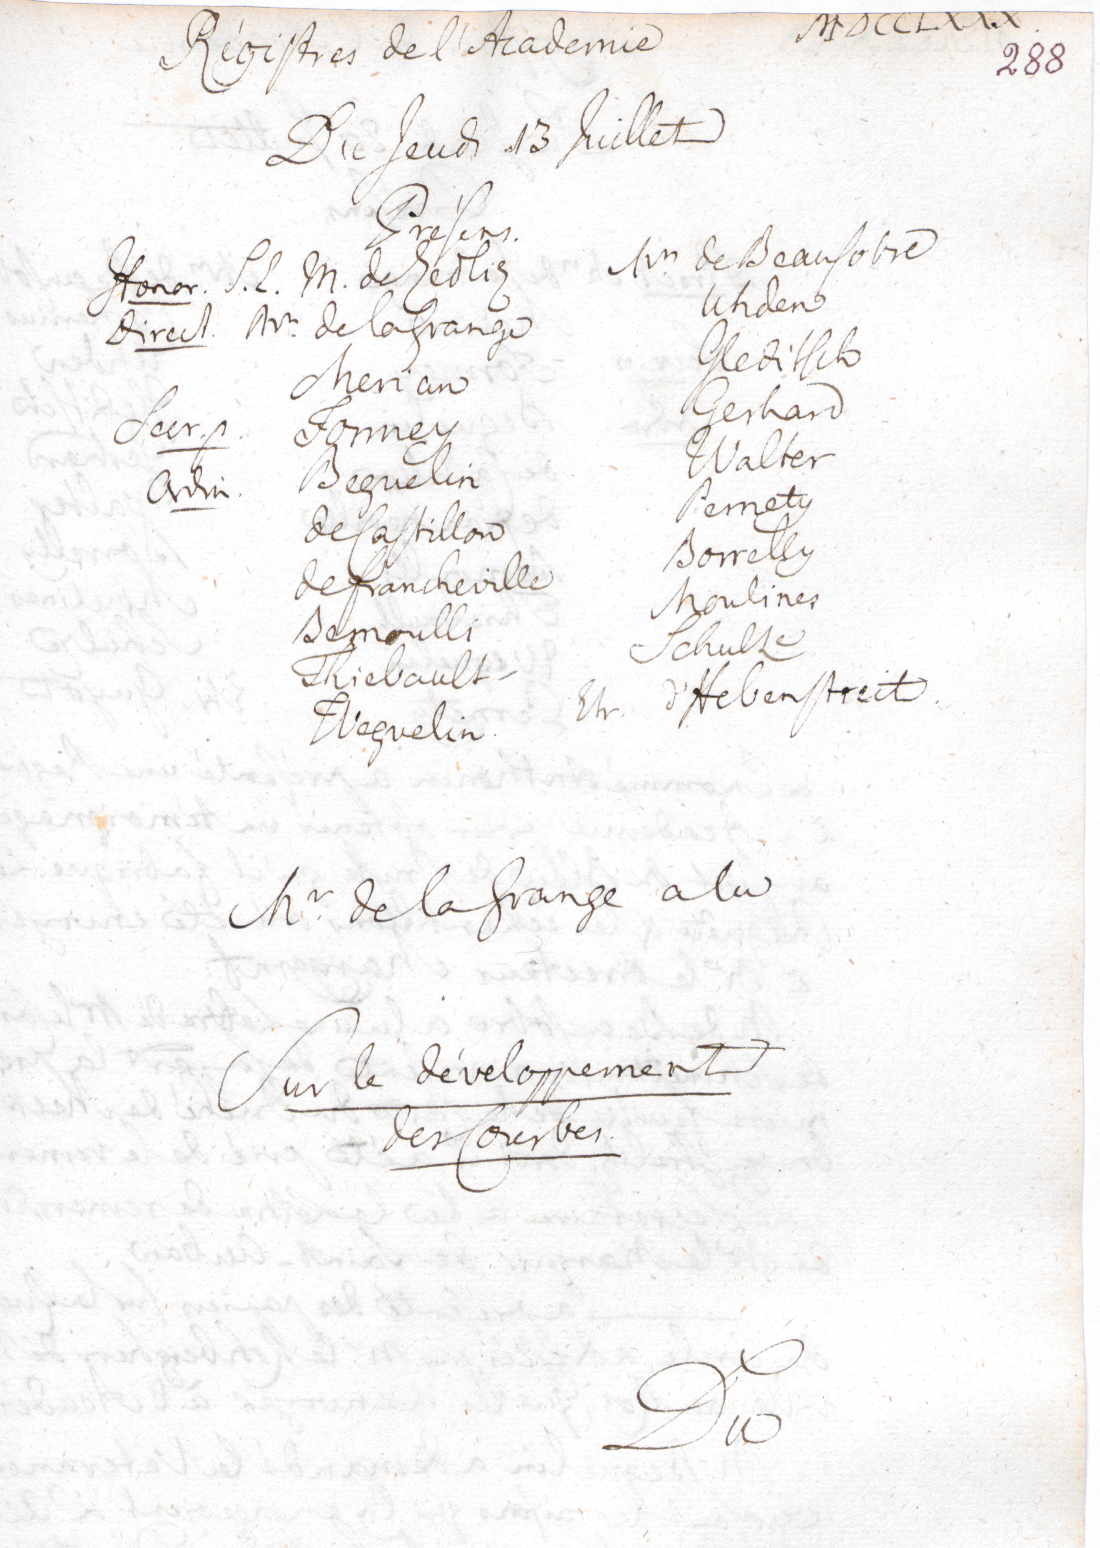 Régistres de l'Academie
MDCCLXXX.
288
Du Jeudi 13 Juillet
Présens.
Honor. S. E. M. de Zedlitz
Direct. Mrs. de la Grange
Merian
Secr. p. Formey
Ordin. Beguelin
de Castillon
de Francheville
Bernoulli
Thiebault
Weguelin.
Mrs de Beausobre
Uhden
Gleditsch
Gerhard
Walter
Pernety
Borrelly
Moulines
Schulze
Etr. d'Hebenstreit.
Mr. de la Grange a lu
Sur le développement
des Courbes.
Du